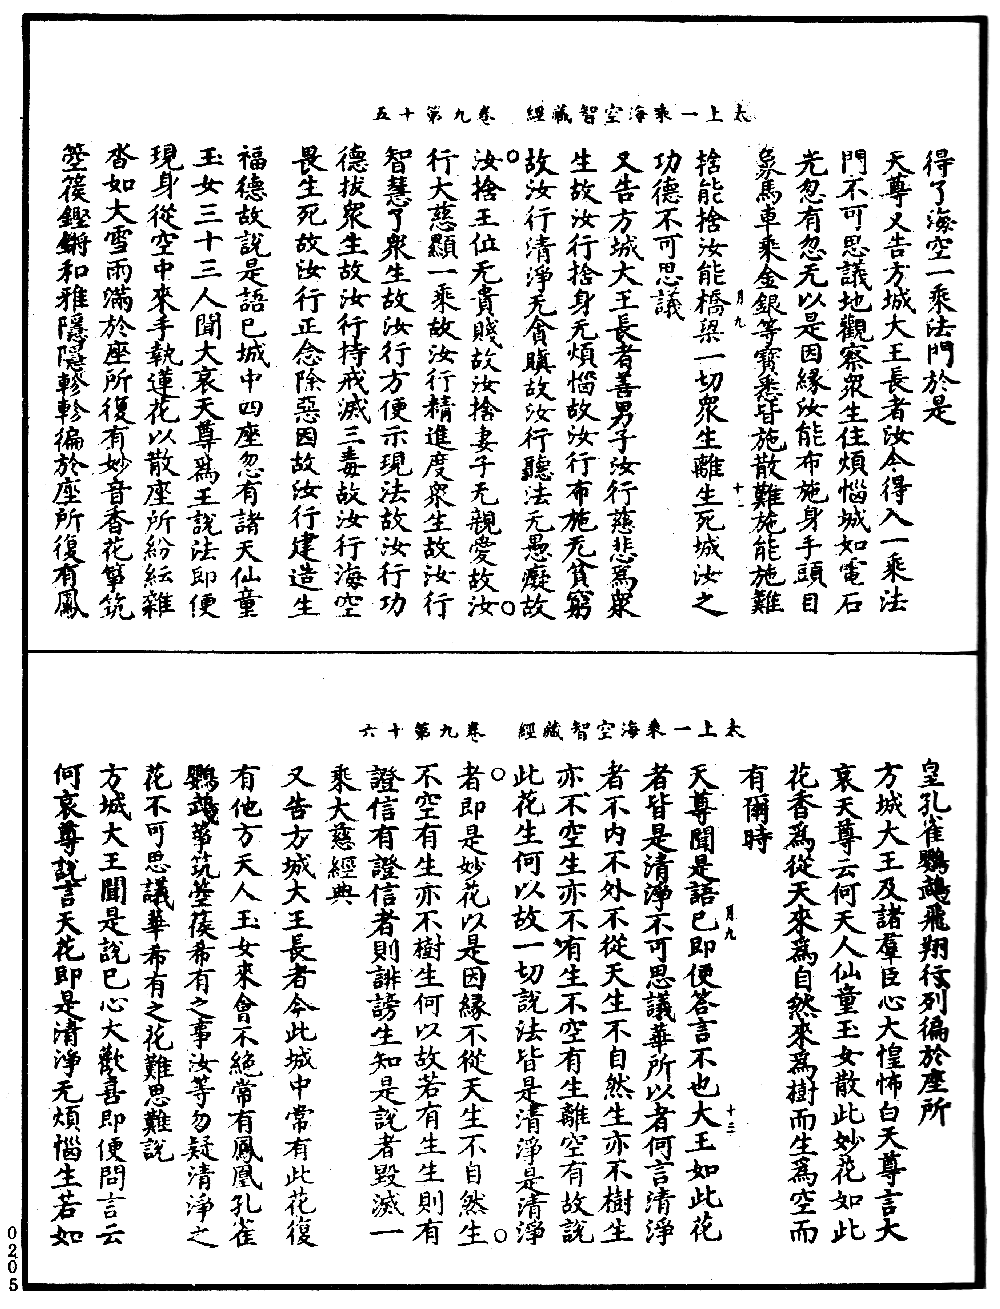 太上一乘海空智藏經　卷九第十五
得了海空一乘法門於是
天尊又告方城大王長者汝今得入一乘法
門不可思議地觀察衆生住煩惱城如電石
光忽有忽无以是因緣汝能布施身手頭目
象馬車乘金銀等寶悉皆施散難施能施難
捨能捨汝能橋梁一切衆生離生死城汝之
功德不可思議
又告方城大王長者善男子汝行慈悲爲衆
生故汝行捨身无煩惱故汝行布施无貧窮
故汝行清淨无貪瞋故汝行聽法无愚癡故
汝捨王位无貴賤故汝捨妻子无親愛故汝
行大慈顯一乘故汝行精進度衆生故汝行
智慧了衆生故汝行方便示現法故汝行功
德拔衆生故汝行持戒滅三毒故汝行海空
畏生死故汝行正念除惡因故汝行建造生
福德故說是語已城中四座忽有諸天仙童
玉女三十三人聞大哀天尊爲王說法即便
現身從空中來手執蓮花以散座所紛紜雜
沓如大雪雨滿於座所復有妙音香花箏筑
箜篌鏗鏘和雅隱隱軫軫徧於座所復有鳳
月九
十一
太上一乘海空智藏經　卷九第十六
皇孔雀鸚鵡飛翔行列徧於座所
方城大王及諸羣臣心大惶怖白天尊言大
哀天尊云何天人仙童玉女散此妙花如此
花香爲從天來爲自然來爲樹而生爲空而
有爾時
天尊聞是語已即便答言不也大王如此花
者皆是清淨不可思議華所以者何言清淨
者不內不外不從天生不自然生亦不樹生
亦不空生亦不有生不空有生離空有故說
此花生何以故一切說法皆是清淨是清淨
者即是妙花以是因緣不從天生不自然生
不空有生亦不樹生何以故若有生生則有
證信有證信者則誹謗生知是說者毀滅一
乘大慈經典
又告方城大王長者今此城中常有此花復
有他方天人玉女來會不絕常有鳳凰孔雀
鸚鵡箏筑箜篌希有之事汝等勿疑清淨之
花不可思議華希有之花難思難說
方城大王聞是說已心大歡喜即便問言云
何哀尊說言天花即是清淨无煩惱生若如
月九
十三
0205